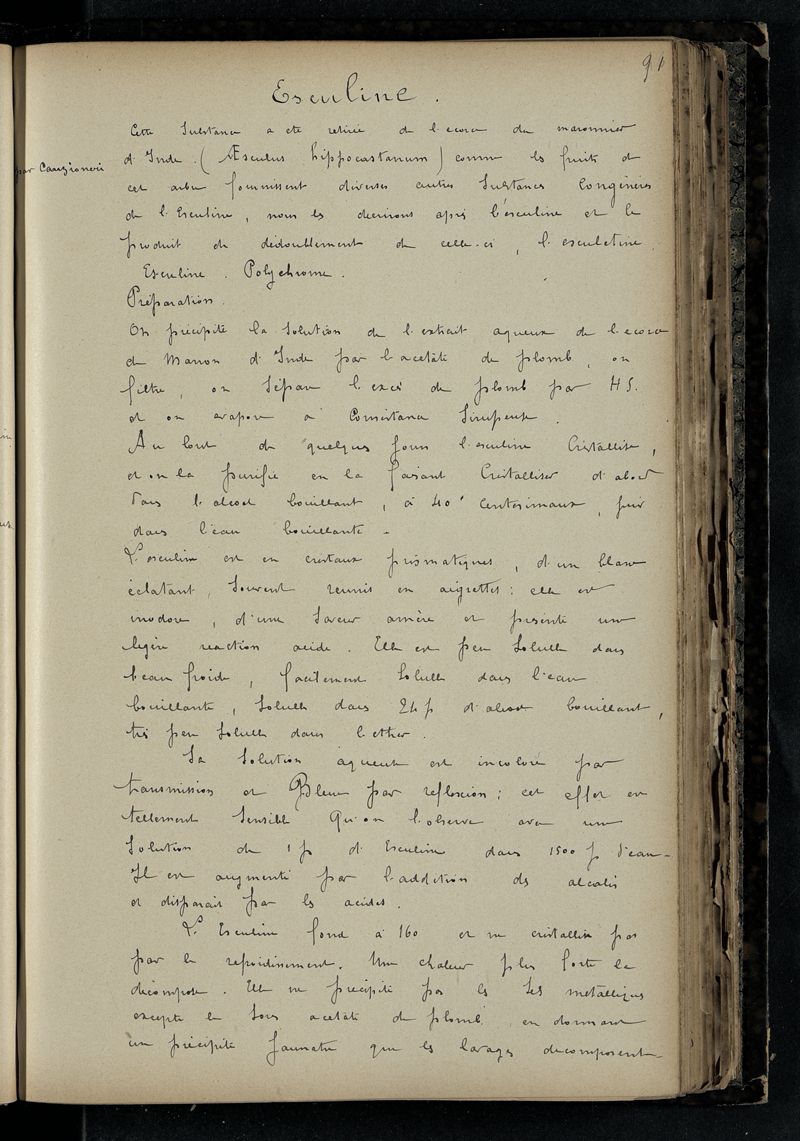 91
Esculine.
Cette Substance a été retirée de l'ecorce du maronnier
par Canzoneri
d'Inde. (Æsculus hippocastanum) comme les fruits de
cet arbre fournissent diverses autres Substances Congénères
de l'Esculine, nous les decrirons après l'esculine et le
produit de dedoublement de celle-ci, l'esculetine.
Esculine. Polychrome.
Préparation.
On precipite la Solution de l'extrait aqueux de l'ecorce
de Marron d'Inde par l'acetate de plomb, on
filtre, on Sépare l'exces de plomb par HS.
et on evapore a Consistance Sirupeuse.
Au bout de quelques jours l'esculine Cristallise,
et on la purifie en la faisant Cristalliser d'abord
dans l'alcool bouillant, à 40° Centesimaux, puis
dans l'eau bouillante.
L'esculine est en cristaux prismatiques, d'un blanc
éclatant, Souvent reunis en aigrettes: elle est
inodore, d'une Saveur amère et presente une
legère reaction acide. Elle est peu Soluble dans
l'eau froide, facilement Soluble dans l'eau
bouillante, Soluble dans 24 p d'alcool bouillant,
très peu Soluble dans l'ether.
Sa Solution aqueuse est incolore par
transmission et Bleue par reflexion; cet effet est
tellement Sensible Qu'on l'observe avec une
Solution de 1 p d'Esculine dans 1500 p d'eau.
Il est augmenté par l'addition des alcalis
et disparait par les acides.
L'Esculine fond à 160 et ne cristallise pas
par le refroidissement. Une chaleur plus forte la
decompose. Elle ne precipite pas les Sels metalliques
excepté le Sous acetate de plomb, en donnant
un précipité Jaunatre que les lavages decomposent